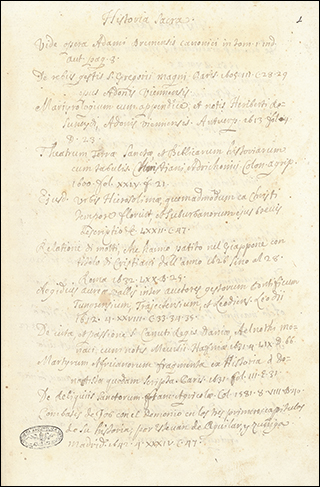 Historia Sacra.
1
Vide opera Adami Bremensis canonici in tom. 1 ind.
aut. pag. 3.
De rebus gestis S. Gregorii magni. Paris
Adonis Viennensis.
Martyrologium cum appendice, et notis Heriberti Ros-
Adonis Viennensis. Antuerp. 1613 fol.
D. 23.
Theatrum Terræ Sanctæ et Biblicarum historiarum
cum tabulis Christiani Adrichomii Colon. agrip.
1600. fol. XXIV. F. 21.
Ejusd. Urbis Hierosolimæ quemadmodum ea Christi
tempore floruit, et suburbanorum ejus brevis
descriptio 8. LXXII. C. 47.
Relatione di molti, che hanno patito nel Giappone con
titolo di Cristiani dell'anno 1626 sino al 28.
Roma 1632. LXX. B. 25.
Ægidius aureæ vallis inter auctores gestorum Pontificum
Tungrensium, Trajectensium, et Leodiens. Leodii
1612. 4. XXVIII. C. 33. 34. 35.
De vita et passione S. Canuti Regis Daniæ, Aelnothus mo-
nacus, cum notis Meursii Hafniæ 1631. 4. LIX. D. 66
Martyrum Africanorum fragmenta ex Historia de Do-
natistis quædam scripta Paris. 1631. fol. III. E. 31.
De Reliquiis Sanctorum Agricola Col. 1581. 8. VIII. D.
Combates de Job con el Demonio en los tres primeros capitulos
de su historia, por Estevan de Aguilar, y Zuñiga
Madrid 1642. 4. XXXIV. C. 47.